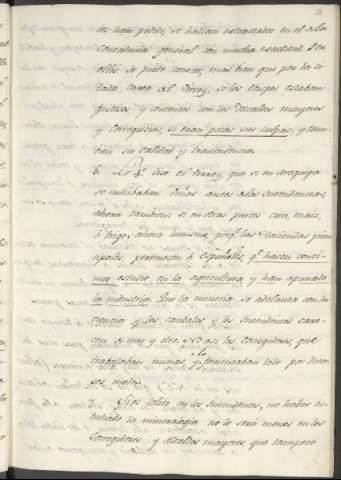 3
les han pedido, se hallan extractados en el a la
Contaduria general con mucha exactitud. Por
ellos se puede conocer, mas bien que por la si
tada carta al Virrey, si los Obispos estaban
justos y contentos con los Alcaldes mayores
y Corregidores, si eran pocas sus culpas, y tam-
bien su calidad y trascendencia.
6. Lo 4º dice el Virrey, que si en Arequipa
se cultibaban Viñas antes a las Intendencias,
ahora tambien: si en otras partes coca, maiz,
ò trigo, ahora lo mismo, porqe las Haciendas prin
cipales pertenecen à Españoles, qe hacen conti-
nuo estudio en la agricultura, y han apurado
la industria. Que la mineria se adelanta con la
ciencia y los caudales, y los Intendentes care-
cen a uno y otro. No asi los Corregidores, que
trabajaban minas, y lo fomentaban todo por
ses, metro
7. Si es delito en los Intendentes, no haber es-
tudiado la mineralogia no lo será menos en los
Corregidores y Alcaldes mayores, que tampoco